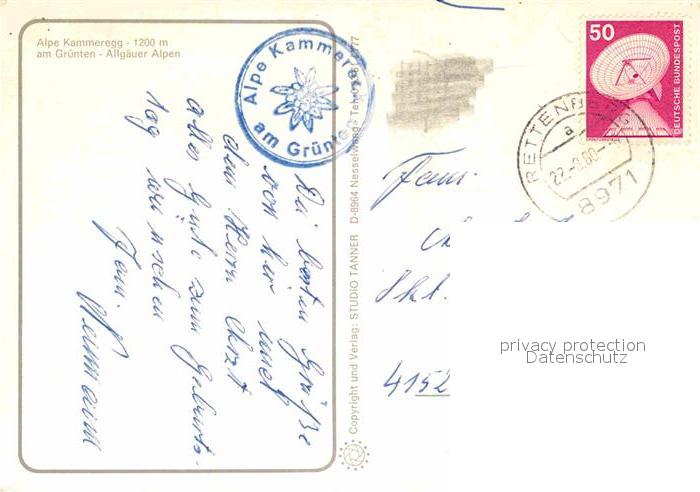 Alpe Kammeregg - 1200 m
am Grünten - Allgäuer Alpen
Alpe Kammeregg
am Grünten
Die besten Grüße
von hier und
dem Herrn
alles Gute zum Geburts-
tag wünschen
Fam.
Neumann
Copyright und Verlag: STUDIO TANNER D-8964 Nesselwang
50
DEUTSCHE BUNDESPOST
RETTENBERG
a
8971
Fam.
4152
privacy protection
Datenschutz